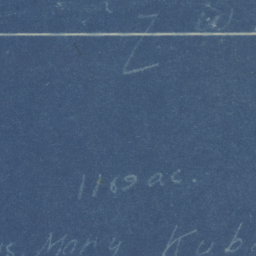 Z
1169 ac.
s. Mary Kub